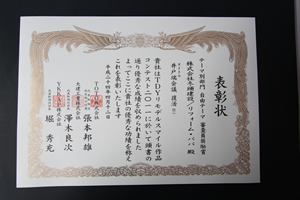 表彰状
テーマ別部門 自由テーマ 審査員奨励賞
株式会社冬總建設/リフォーム・パパ 殿
井戸端会議 復活!!
貴社はTDYリモデルスマイル作品
コンテスト二〇一一に於いて頭書の
通り優秀な成績を収められました
よってここに貴社の優秀な功績を称え
これを表彰いたします
平成二十四年四月十二日
TOTO株式会社
張本邦雄
大建工業株式会社
澤木良次
YKKAP株式会社
堀秀充